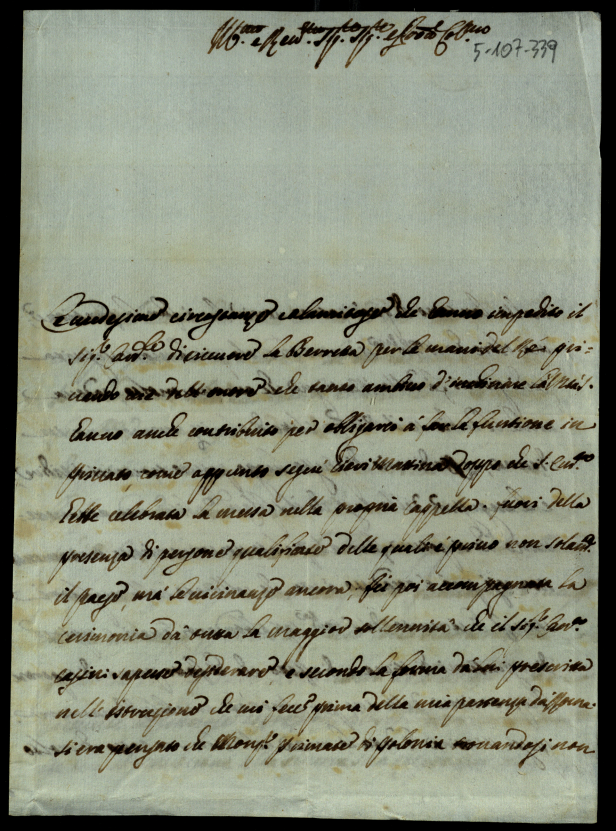 Ill.mo e Rev.mo Sig.re Sig.re e Pron Col.mo
5-107-339
circostanze calamitose che hanno impedito il
Sig.r Card.le di ricevere la Berretta per le mani del Rè, pri-
vando me dell'onore che tanto ambivo di
Hanno anche contribuito per obligarci à far la funtione in
privato come appunto seguì hieri mattina doppo che S. Em.za
hebbe celebrata la messa nella propria Cappella. fuori della
presenza di persone qualificate delle quali è privo non solam.te
il paese, mà le vicinanze ancora. fù poi accompagnata la
cerimonia da tutta la maggior sollennità che il Sig.r
sapesse desiderare e secondo la forma da lui prescritta
nell'istruzione che mi fece prima della mia partenza da Roma.
Si era pensato che Mons.r Primate di Polonia trovandosi non